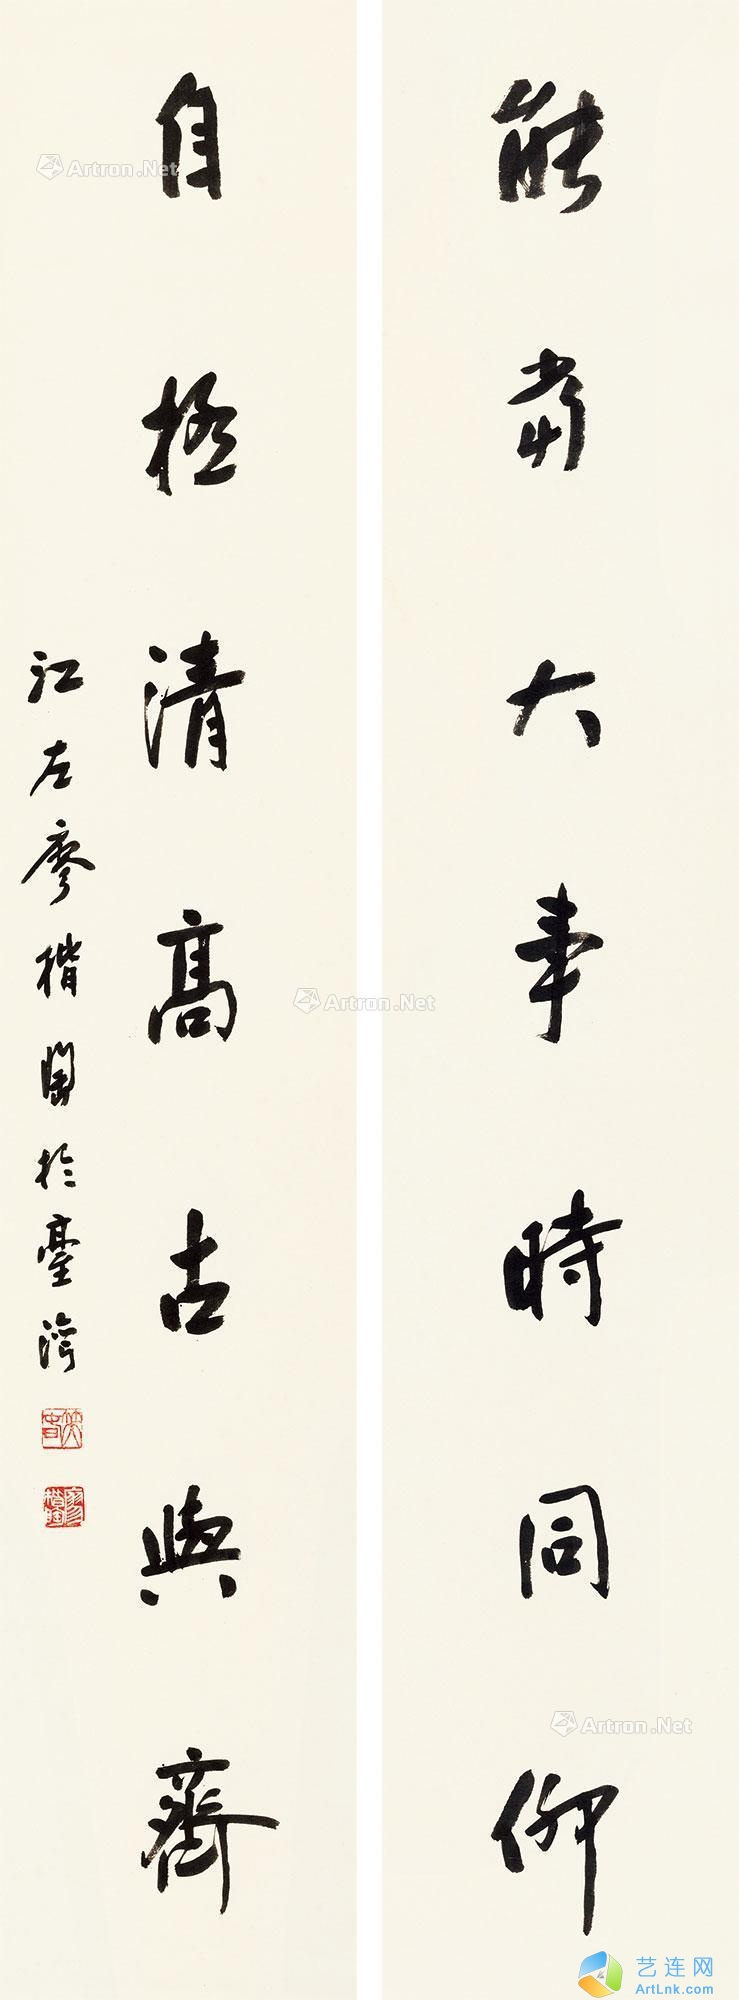 能當大事時同仰
自極清高古與齊
江左廖楷陶於臺灣
Artron.Net
Artron.Net
Artron.Net
艺连网
ArtLnk.com